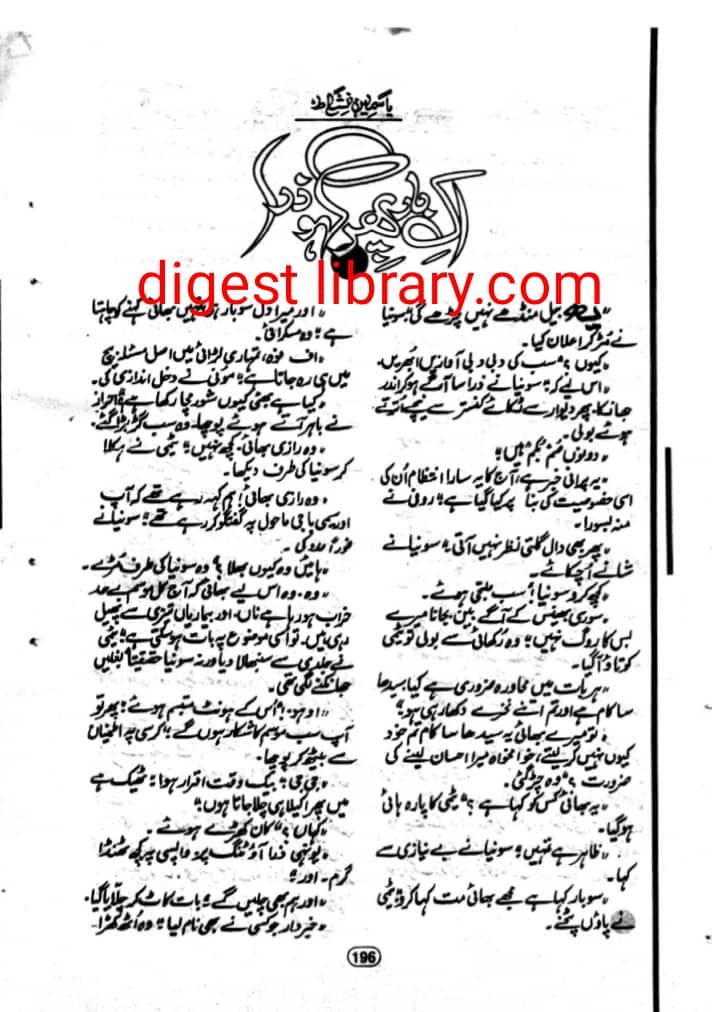 یاسمین نشاط
اک بار پھر کہو ذرا
digest library.com
"یہ بیل منڈھے نہیں چڑھے گی" سونیا
نے مڑ کر اعلان کیا۔
"کیوں؟" سب کی دبی دبی آوازیں ابھریں۔
"اس لیے کہ" سونیا نے ذرا سا آگے ہو کر اندر
جھانکا۔ پھر دیوار سے ٹکائے کنستر سے نیچے اترتے
ہوئے بولی۔
"دونوں صم بکم ہیں"
"یہ پرانی خبر ہے، آج کا یہ سارا انتظام اُن کی
اسی خصوصیت کی بنا پر کیا گیا ہے" روفی نے
منہ بسورا۔
"پھر بھی دال گلتی نظر نہیں آتی" سونیا نے
شانے اُچکائے۔
"کچھ کرو سونیا" سب ملتجی ہوئے۔
"سوری بھینس کے آگے بین بجانا میرے
بس کا روگ نہیں" وہ رکھائی سے بولی تو ٹیمی
کو تاؤ آ گیا۔
"ہر بات میں محاورہ ضروری ہے کیا، سیدھا
سا کام ہے اور تم اتنے نخرے دکھا رہی ہو"
"تو میرے بھائی یہ سیدھا سا کام تم خود
کیوں نہیں کر لیتے، خوامخواہ میرا احسان لینے کی
ضرورت؟" وہ چڑ گئی۔
"یہ بھائی کس کو کہا ہے؟" ٹیمی کا پارہ ہائی
ہو گیا۔
"ظاہر ہے تمہیں" سونیا نے بے نیازی سے
کہا۔
"سو بار کہا ہے مجھے بھائی مت کہا کرو" ٹیمی
نے پاؤں پٹخے۔
"اور میرا دل سو بار تمہیں بھائی کہنے کو چاہتا
ہے" وہ مسکرائی۔
"اف فوہ، تمہاری لڑائی میں اصل مسئلہ بیچ
میں ہی رہ جاتا ہے" مونی نے دخل اندازی کی۔
"کیا ہے بھئی کیوں شور مچا رکھا ہے" احراز
نے باہر آتے ہوئے پوچھا۔ وہ سب گڑبڑا گئے۔
"وہ رازی بھائی، کچھ نہیں" ٹیمی نے ہکلا
کر سونیا کی طرف دیکھا۔
"وہ رازی بھائی! ہم کہہ رہے تھے کہ آپ
اور سیمی باجی ماحول پہ گفتگو کر رہے تھے" سونیا نے
فوراً مدد کی۔
"ہائیں وہ کیوں بھلا؟" وہ سونیا کی طرف مڑے۔
"وہ۔ وہ اس لیے بھائی کہ آج کل موسم بے حد
خراب ہو رہا ہے ناں۔ اور بیماریاں تیزی سے پھیل
رہی ہیں۔ تو اسی موضوع پہ بات ہو سکتی ہے" ٹیمی
نے جلدی سے سنبھالا دیا ورنہ سونیا حقیقتاً بغلیں
جھانکنے لگی تھی۔
"اوہو" اُس کے ہونٹ متبسم ہوئے "پھر تو
آپ سب موسم کا شکار ہوں گے" کرسی پر اطمینان
سے بیٹھ کر پوچھا۔
"جی جی" بیک وقت اقرار ہوا "ٹھیک ہے
میں پھر اکیلا ہی چلا جاتا ہوں"
"کہاں؟" کان کھڑے ہوئے۔
"یونہی ذرا آؤٹنگ پر، واپسی پر کچھ ٹھنڈا
گرم۔ اور"
"اور ہم بھی چلیں گے" بات کاٹ کر چلایا گیا۔
"خبردار جو کسی نے بھی نام لیا" وہ اُٹھ کھڑا۔
196